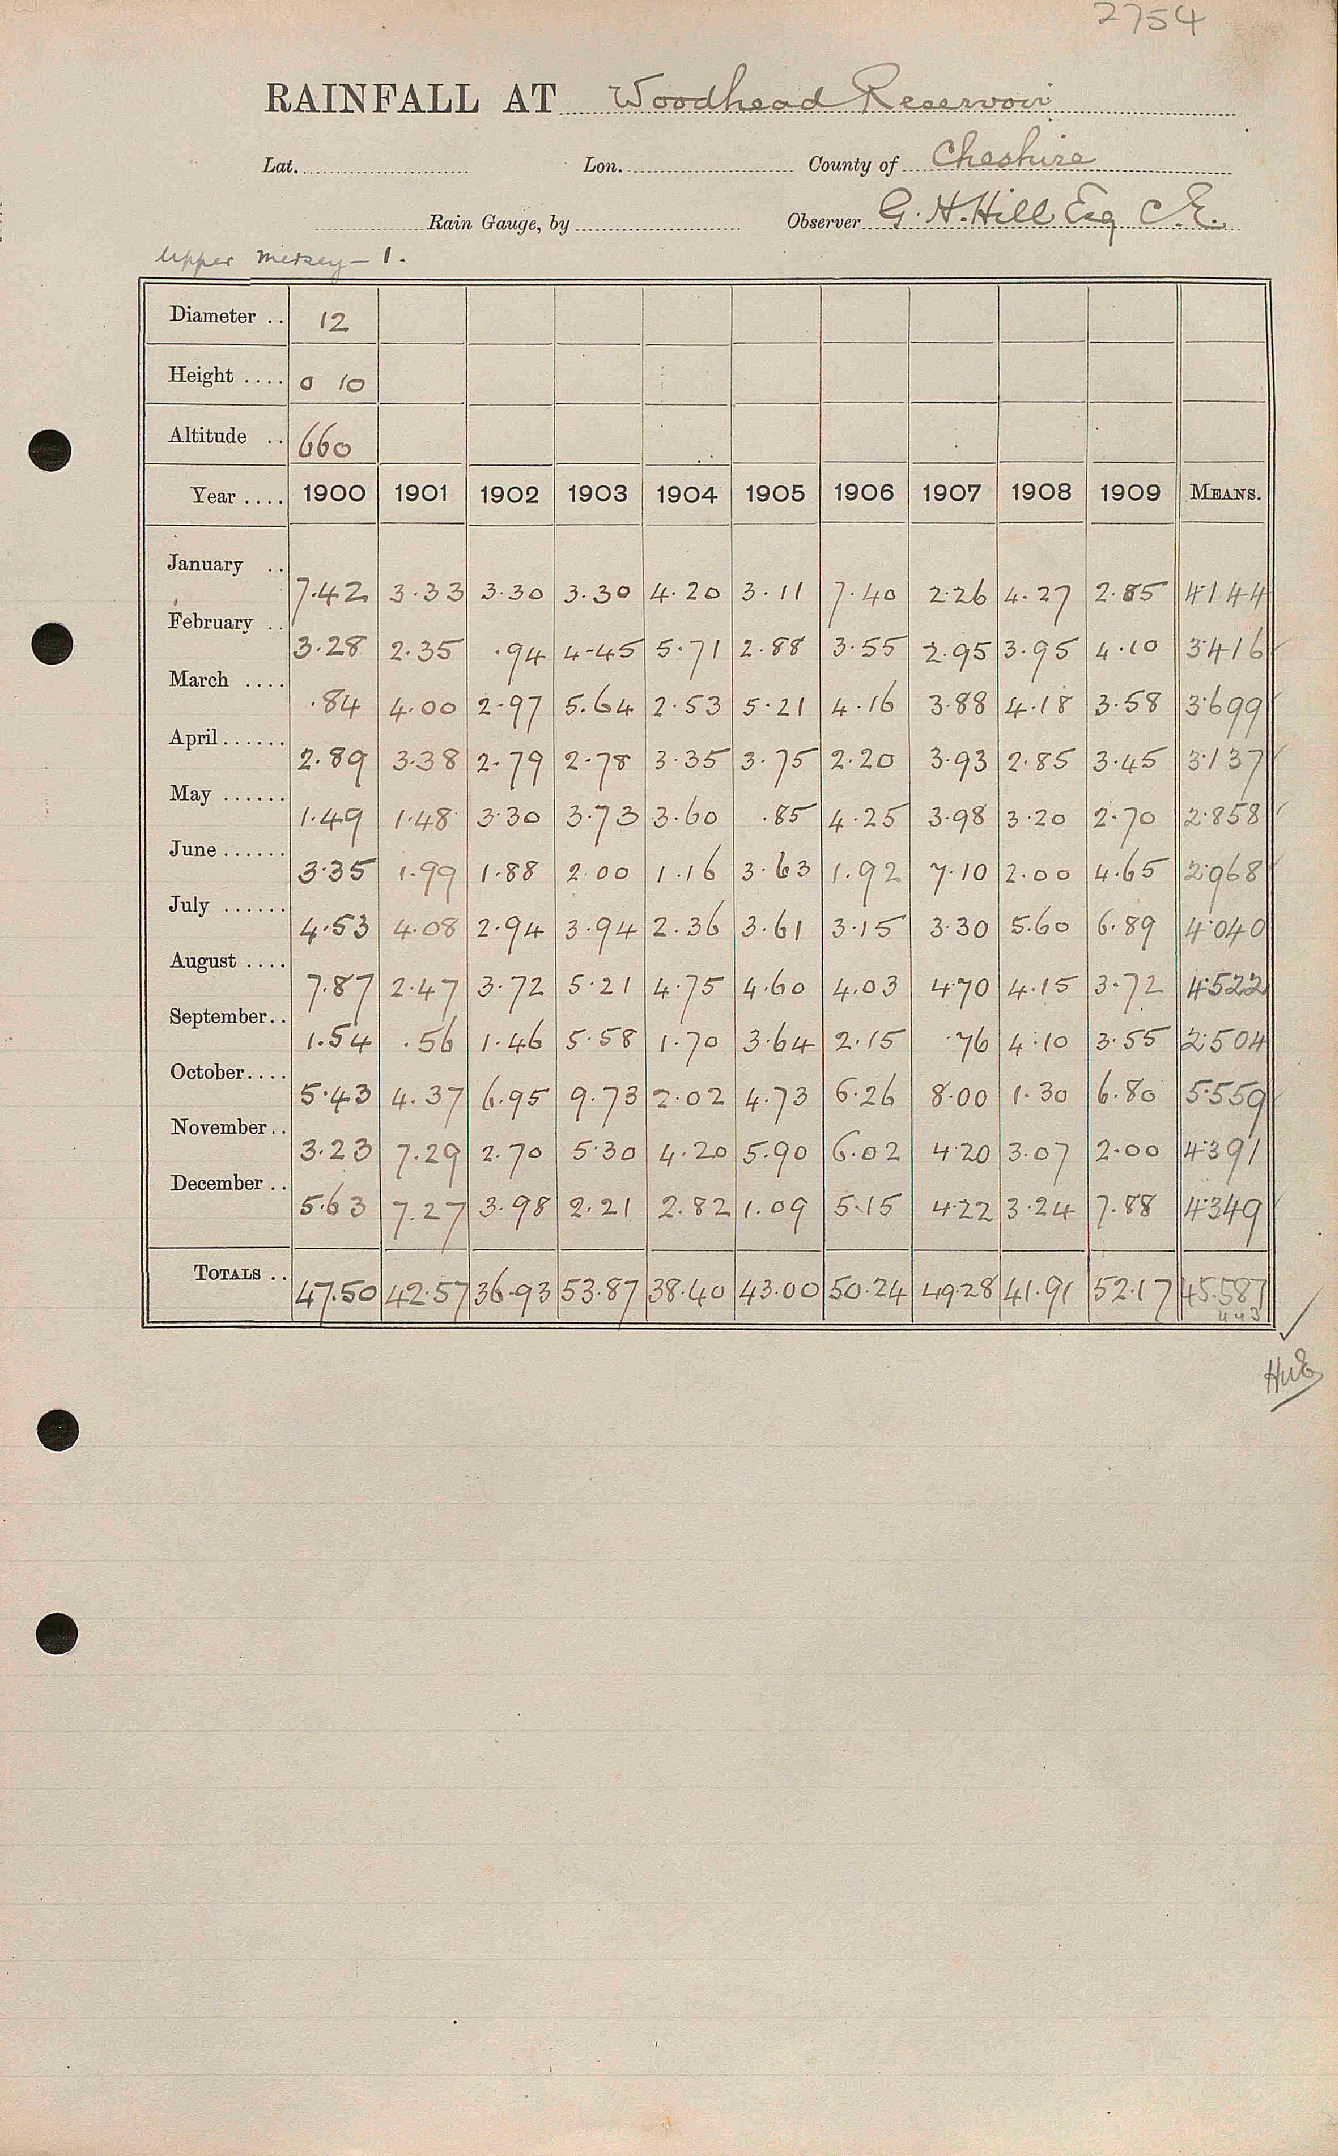 2754
RAINFALL AT Woodhead Reservoir
Lat. Lon. County of Cheshire
Rain Gauge, by Observer G. H. Hill Esq C.E.
Upper Mersey - 1.
Diameter .. 12
Height .... 0 10
Altitude .. 660
Year .... 1900 1901 1902 1903 1904 1905 1906 1907 1908 1909 MEANS.
January .. 7.42 3.33 3.30 3.30 4.20 3.11 7.40 2.26 4.27 2.85 4.144
February .. 3.28 2.35 .94 4.45 5.71 2.88 3.55 2.95 3.95 4.10 3.416
March .... .84 4.00 2.97 5.64 2.53 5.21 4.16 3.88 4.18 3.58 3.699
April ...... 2.89 3.38 2.79 2.78 3.35 3.75 2.20 3.93 2.85 3.45 3.137
May ...... 1.49 1.48 3.30 3.73 3.60 .85 4.25 3.98 3.20 2.70 2.858
June ...... 3.35 1.99 1.88 2.00 1.16 3.63 1.92 7.10 2.00 4.65 2.968
July ...... 4.53 4.08 2.94 3.94 2.36 3.61 3.15 3.30 5.60 6.89 4.040
August .... 7.87 2.47 3.72 5.21 4.75 4.60 4.03 4.70 4.15 3.72 4.522
September .. 1.54 .56 1.46 5.58 1.70 3.64 2.15 .76 4.10 3.55 2.504
October .... 5.43 4.37 6.95 9.73 2.02 4.73 6.26 8.00 1.30 6.80 5.559
November .. 3.23 7.29 2.70 5.30 4.20 5.90 6.02 4.20 3.07 2.00 4.391
December .. 5.63 7.27 3.98 2.21 2.82 1.09 5.15 4.22 3.24 7.88 4.349
TOTALS .. 47.50 42.57 36.93 53.87 38.40 43.00 50.24 49.28 41.91 52.17 45.587